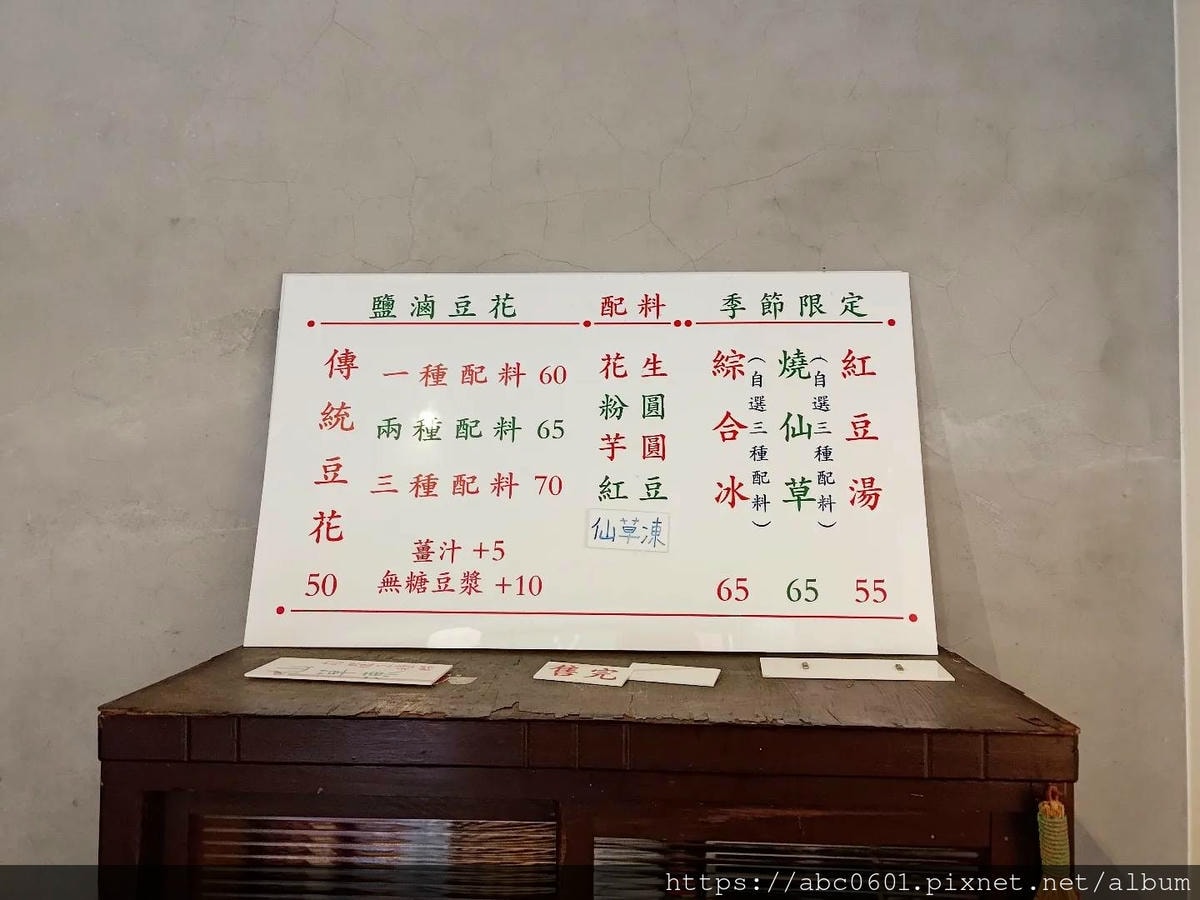 鹽滷豆花
傳統豆花
50
一種配料 60
兩種配料 65
三種配料 70
薑汁 +5
無糖豆漿 +10
配料
花生
粉圓
芋圓
紅豆
仙草凍
季節限定
紅豆湯
55
燒仙草
(自選三種配料)
65
綜合冰
(自選三種配料)
65
售完
https://abc0601.pixnet.net/album